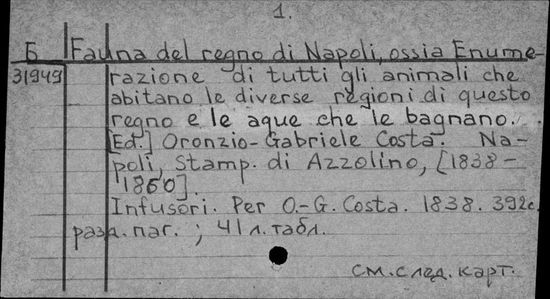 1.
Б Fauna del regno di Napoli, ossia Enume-
31949 razione di tutti gli animali che
abitano le diverse regioni di questo
regno e le aque che le bagnano.
[Ed.] Oronzio-Gabriele Costa. Na-
poli, Stamp. di Azzolino, [1838-
1860].
Infusori. Per O.-G. Costa. 1838. 392c.
разд. паг. ; 41 л. табл.
см. след. карт.